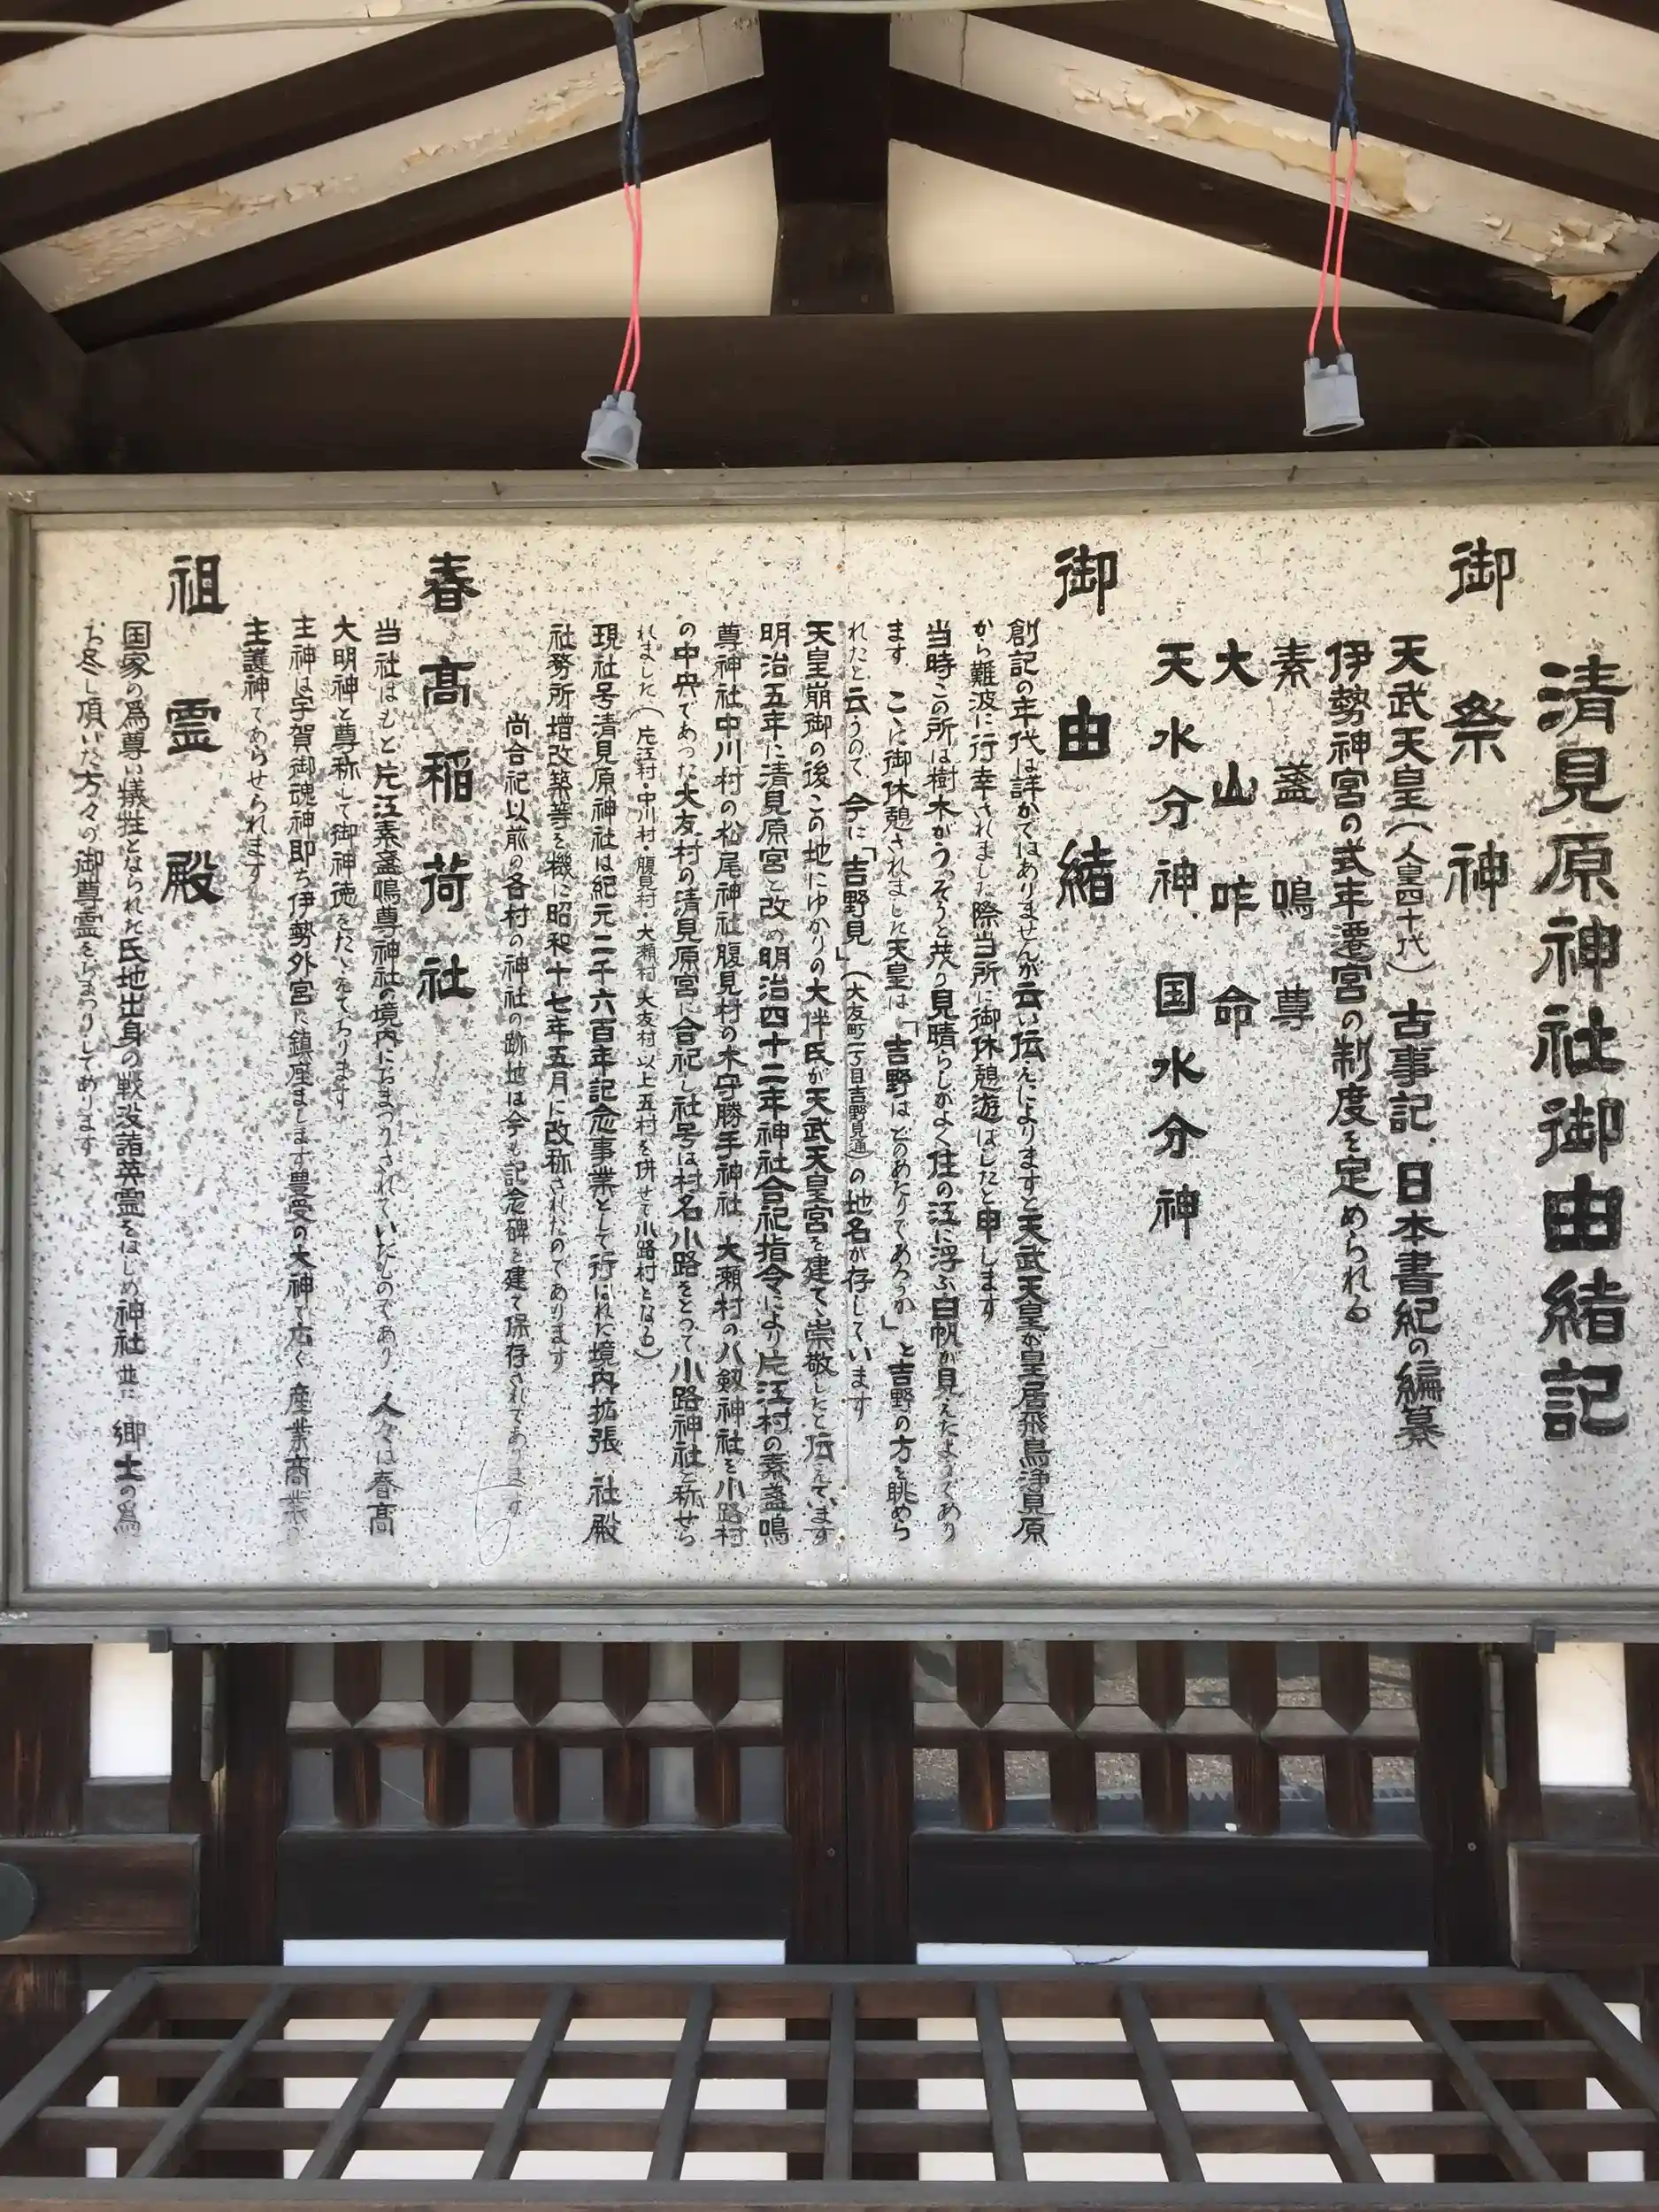 清見原神社御由緒記
御祭神
天武天皇(人皇四十代) 古事記、日本書紀の編纂
伊勢神宮の式年遷宮の制度を定められる
素盞鳴尊
大山咋命
天水分神、国水分神
御由緒
創記の年代は詳かではありませんが云い伝えによりますと天武天皇が皇居飛鳥浄見原
から難波に行幸されました際当所に御休憩遊ばしたと申します
当時この所は樹木がうっそうと茂り見晴らしがよく住の江に浮ぶ白帆が見えたようであり
ます こゝに御休憩されました天皇は「吉野はどのあたりであろうか」と吉野の方を眺めら
れたと云うので 今に「吉野見」(大友町一丁目吉野見通)の地名が存しています
天皇崩御の後この地にゆかりの大伴氏が天武天皇宮を建てゝ崇敬したと伝えています
明治五年に清見原宮と改め明治四十二年神社合祀指令により片江村の素盞鳴
尊神社中川村の松尾神社腹見村の木守勝手神社 大瀬村の八劔神社を小路村
の中央であった大友村の清見原宮に合祀し社号は村名小路をとって小路神社と称せら
れました(片江村・中川村・腹見村・大瀬村 大友村 以上五村を併せて小路村となる)
現社号清見原神社は紀元二千六百年記念事業として行はれた境内拡張 社殿
社務所増改築等を機に昭和十七年五月に改称されたのであります
尚合祀以前の各村の神社の跡地は今も記念碑を建て保存されてあります
春高稲荷社
当社はもと片江素盞鳴尊神社の境内におまつりされていたものであり、人々は春高
大明神と尊称して御神徳をたゝえております
主神は宇賀御魂神即ち伊勢外宮に鎮座まします豊受の大神で広く 産業商業の
主護神であらせられます
祖霊殿
国家の為尊い犠牲となられた氏地出身の戦没諸英霊をはじめ神社 並に 郷土の為
お尽し頂いた方々の御尊霊をおまつりしてあります